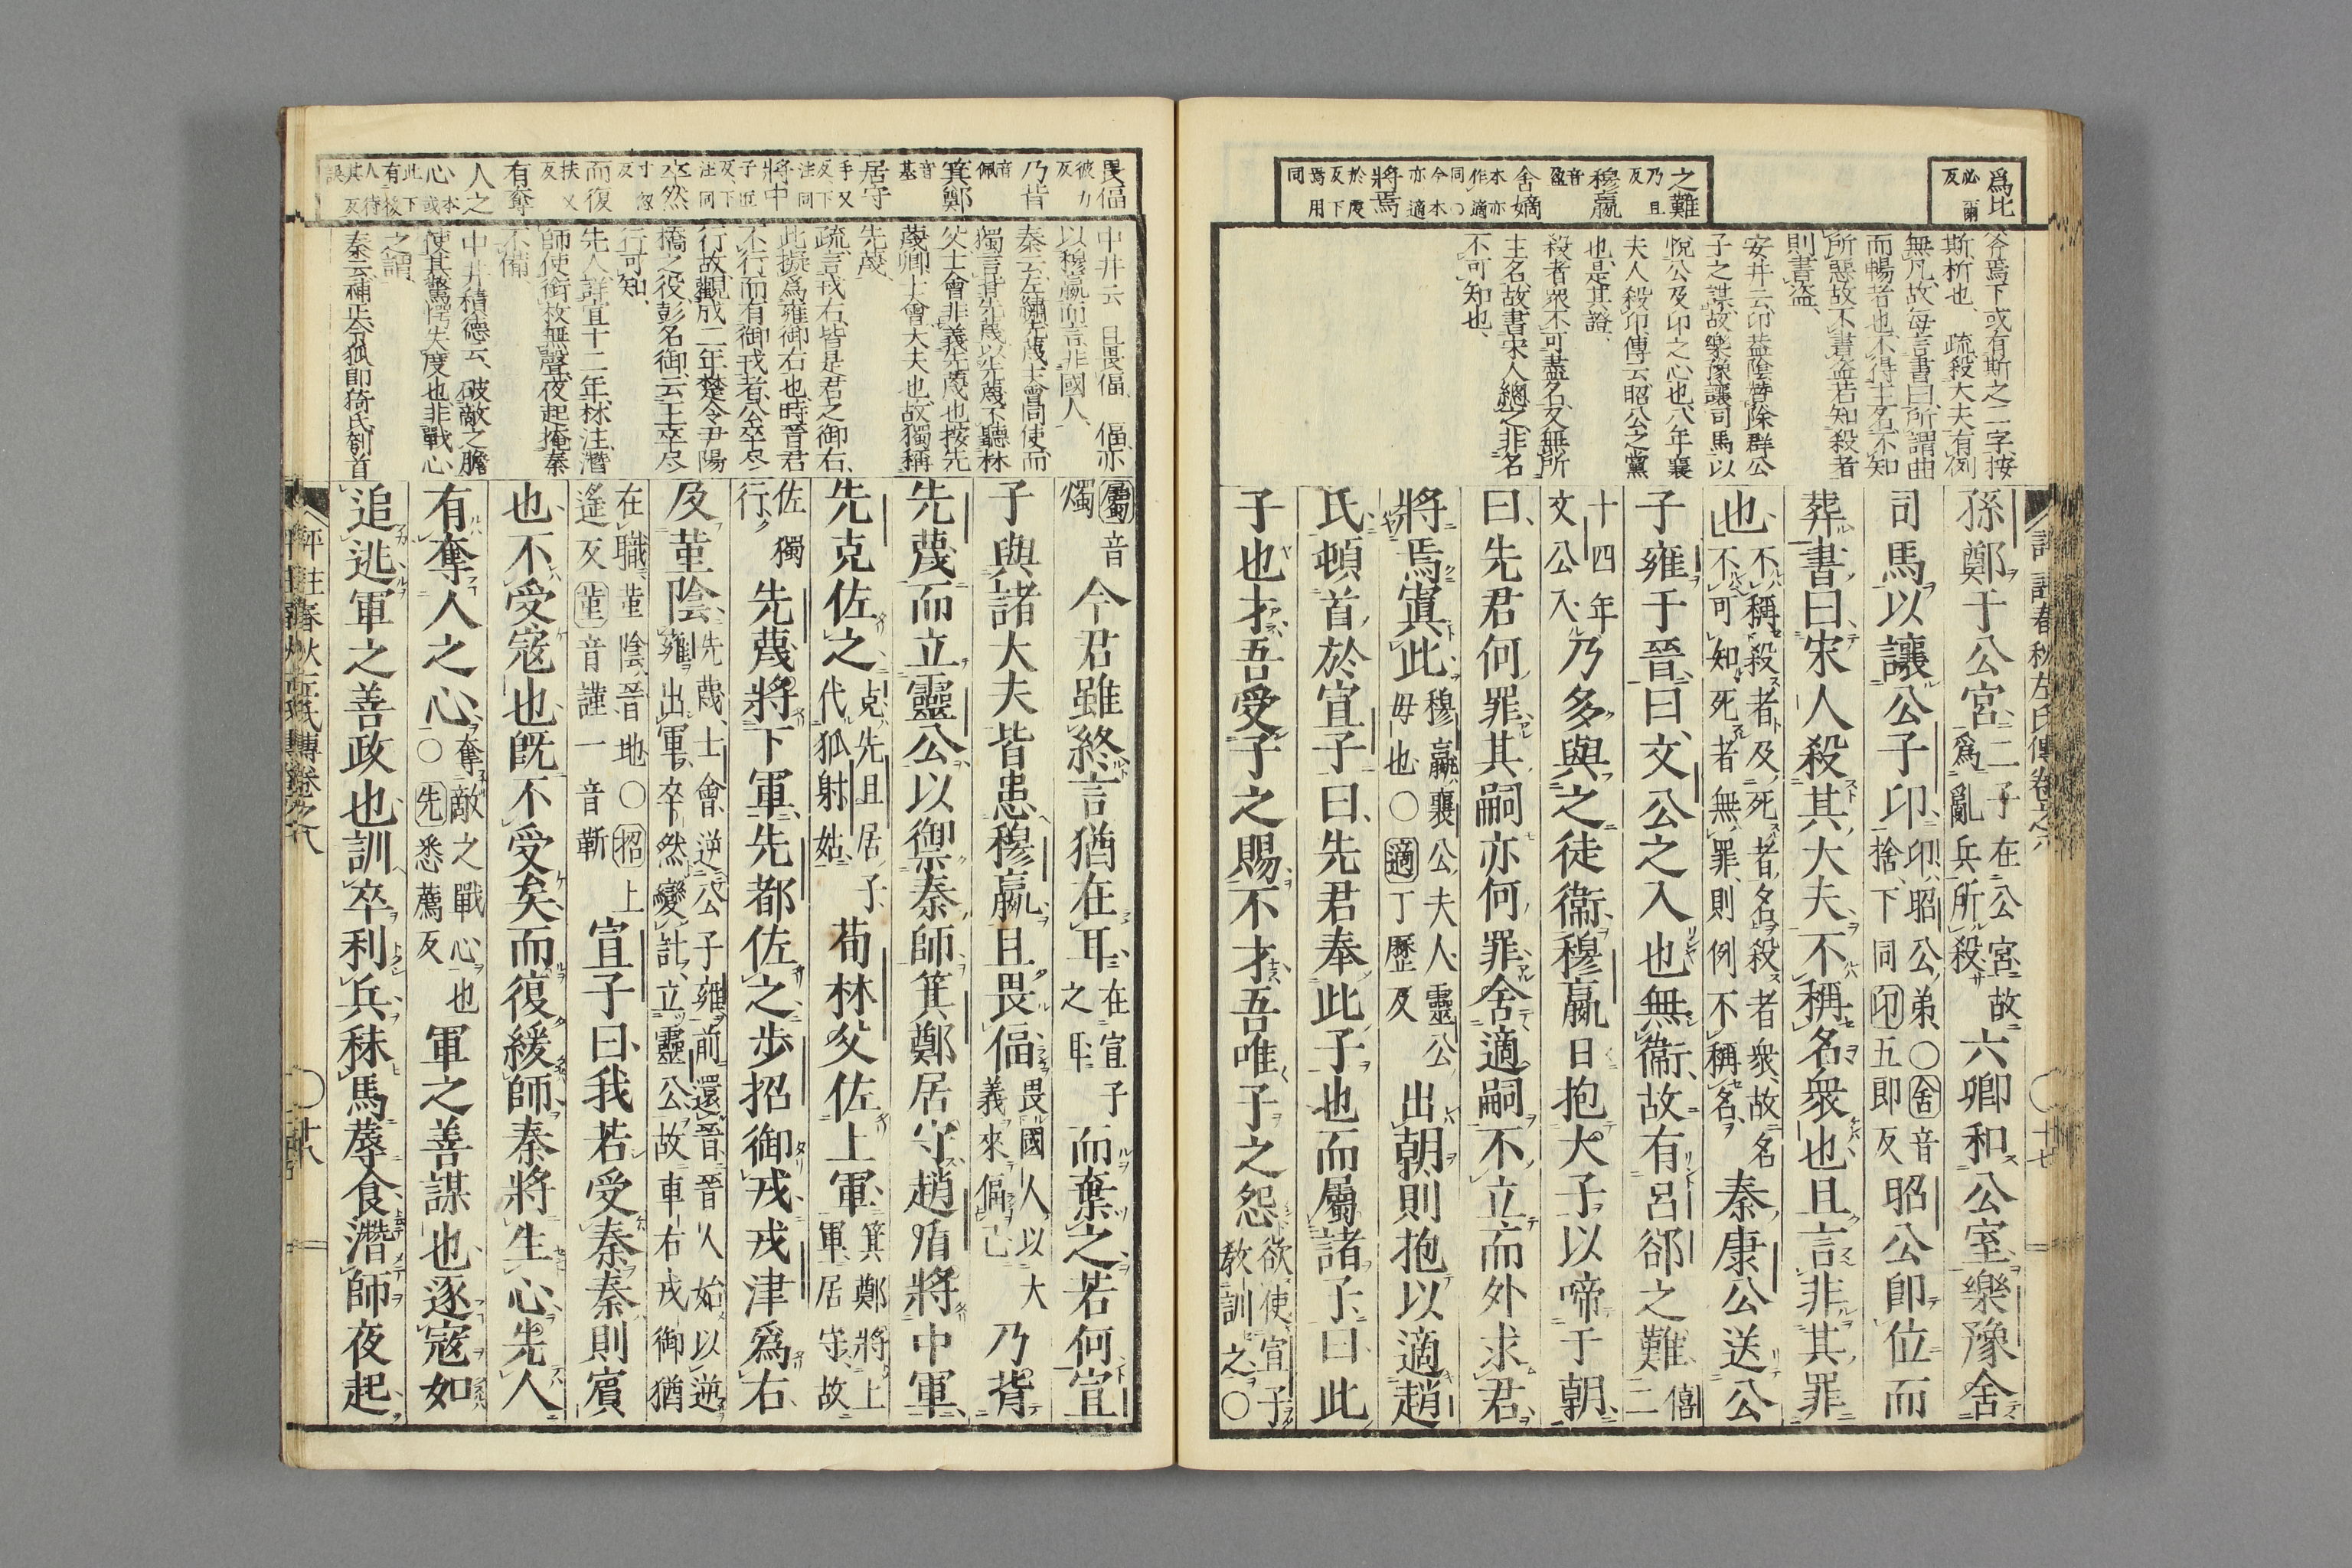 爲比
必爾
反
之難
乃且
反
穆嬴
音
盈
舍嫡
本亦
作適
同○
今本
亦適
將焉
於虔
反下
焉用
同
斧焉下或有斯之二字按
斯析也、疏殺大夫有例
無凡故每言書曰所謂曲
而暢者也不得主名不知
所惡故不書盜若知殺者
則書盜、
安井云、卬益陰贊除群公
子之謀故樂豫讓司馬以
悅公及卬之心也八年襄
夫人殺卬傳云昭公之黨
也是其證、
殺者衆不可盡名又無所
主名故書宋人總之非名
不可知也、
孫鄭于公宮二子在公宮故
爲亂兵所殺六卿和公室樂豫舍
司馬以讓公子卬卬昭公弟○舍音
捨下同卬五即反昭公即位而
葬書曰宋人殺其大夫不稱名衆也且言非其罪
也不稱殺者及死者名殺者衆故名
不可知死者無罪則例不稱名秦康公送公
子雍于晉曰文公之入也無衞故有呂郤之難僖
二
十四年
文公入乃多與之徒衞穆嬴日抱大子以啼于朝
曰先君何罪其嗣亦何罪舍適嗣不立而外求君
將焉寘此穆嬴襄公夫人靈公
母也○適丁歷反出朝則抱以適趙
氏頓首於宣子曰先君奉此子也而屬諸子曰此
子也才吾受子之賜不才吾唯子之怨欲使宣子
教訓之○
評註春秋左氏傳卷之八
十七
畏偪
彼力
反
乃背
音
佩
箕鄭
音
基
居守
手又
反下
注同
將中
子匠
反下
注同
卒然
寸忽
反
而復
扶又
反
有奪
人之
心本
或此
下有
後人
待其
反誤
中井云、且畏偪、偪亦
以穆嬴而言非國人、
秦云左繡先蔑士會同使而
獨言背先蔑以先蔑不聽林
父士會非義先蔑也按先
蔑卿士會大夫也故獨稱
先蔑、
疏言戎右皆是君之御右、
此擬爲雍御右也時晉君
不行而有御戎者公卒尽
行故觀成二年楚令尹陽
橋之役彭名御云王卒尽
行可知、
先人詳宣十二年林注潛
師使銜枚無聲夜起掩秦
不備、
中井積德云、破敵之膽
使其驚愕失度也非戰心
之謂、
秦云補正令狐即猗氏刳首
屬音
燭今君雖終言猶在耳在宣子
之耳而棄之若何宣
子與諸大夫皆患穆嬴且畏偪畏國人以大
義來偪己乃背
先蔑而立靈公以禦秦師箕鄭居守趙盾將中軍
先克佐之克先且居子
代狐射姑荀林父佐上軍箕鄭將上
軍居守故
佐獨
行先蔑將下軍先都佐之步招御戎戎津爲右
及菫陰先蔑士會逆公子雍前還晉晉人始以逆
雍出軍卒然變計立靈公故車右戎御猶
在職菫陰晉地○招上
遙反菫音謹一音靳宣子曰我若受秦秦則賓
也不受寇也既不受矣而復緩師秦將生心先人
有奪人之心奪敵之戰心也
○先悉薦反軍之善謀也逐寇如
追逃軍之善政也訓卒利兵秣馬蓐食潛師夜起
評註春秋左氏傳卷之八
十八